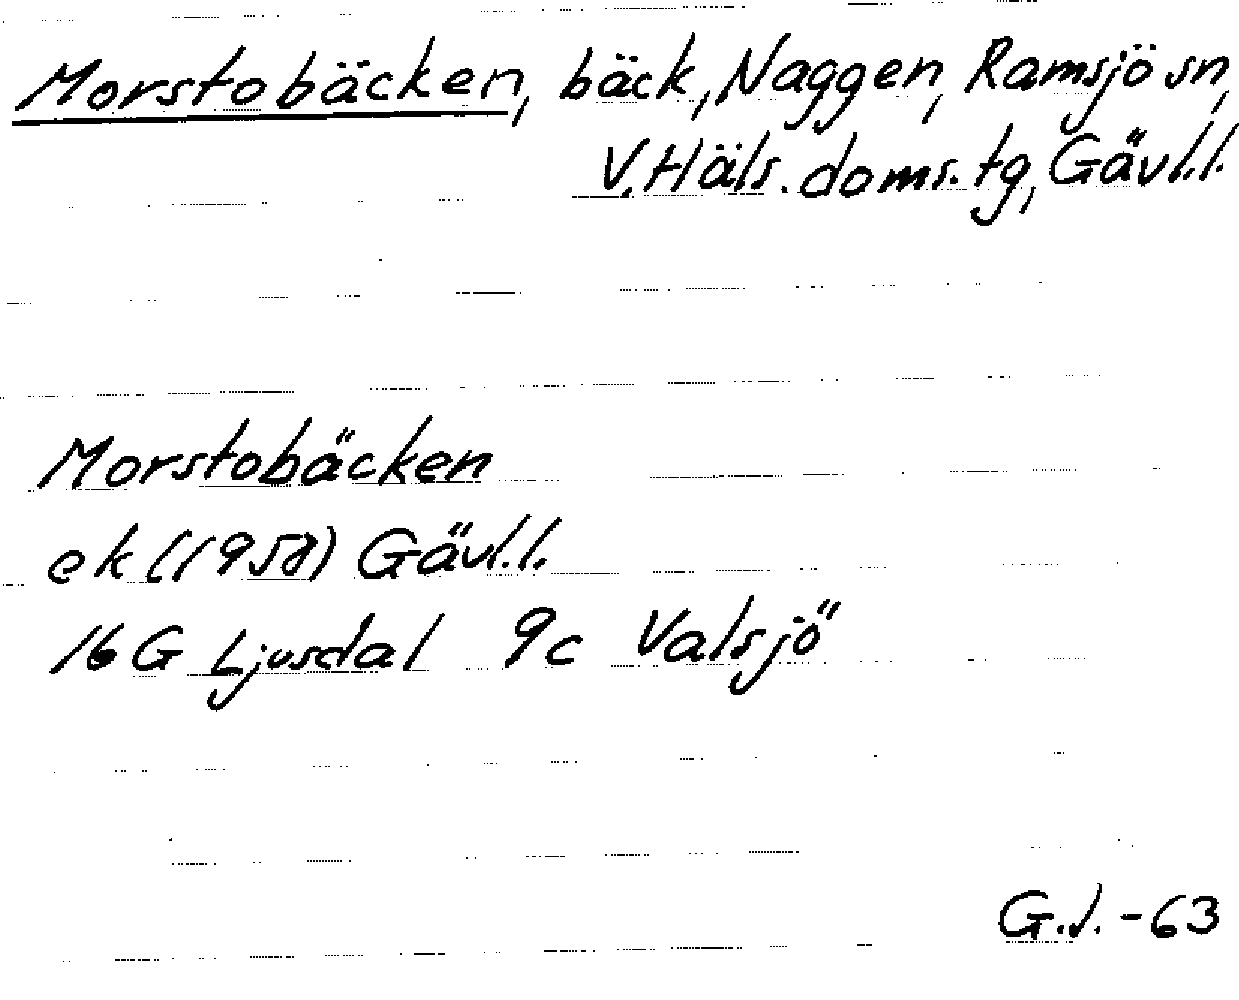 Morstobäcken, bäck, Naggen, Ramsjö sn,
V. Häls. doms. tg, Gävl.l.
Morstobäcken
ek (1958) Gävl.l.
16 G Ljusdal 9c Valsjö
G.J. - 63